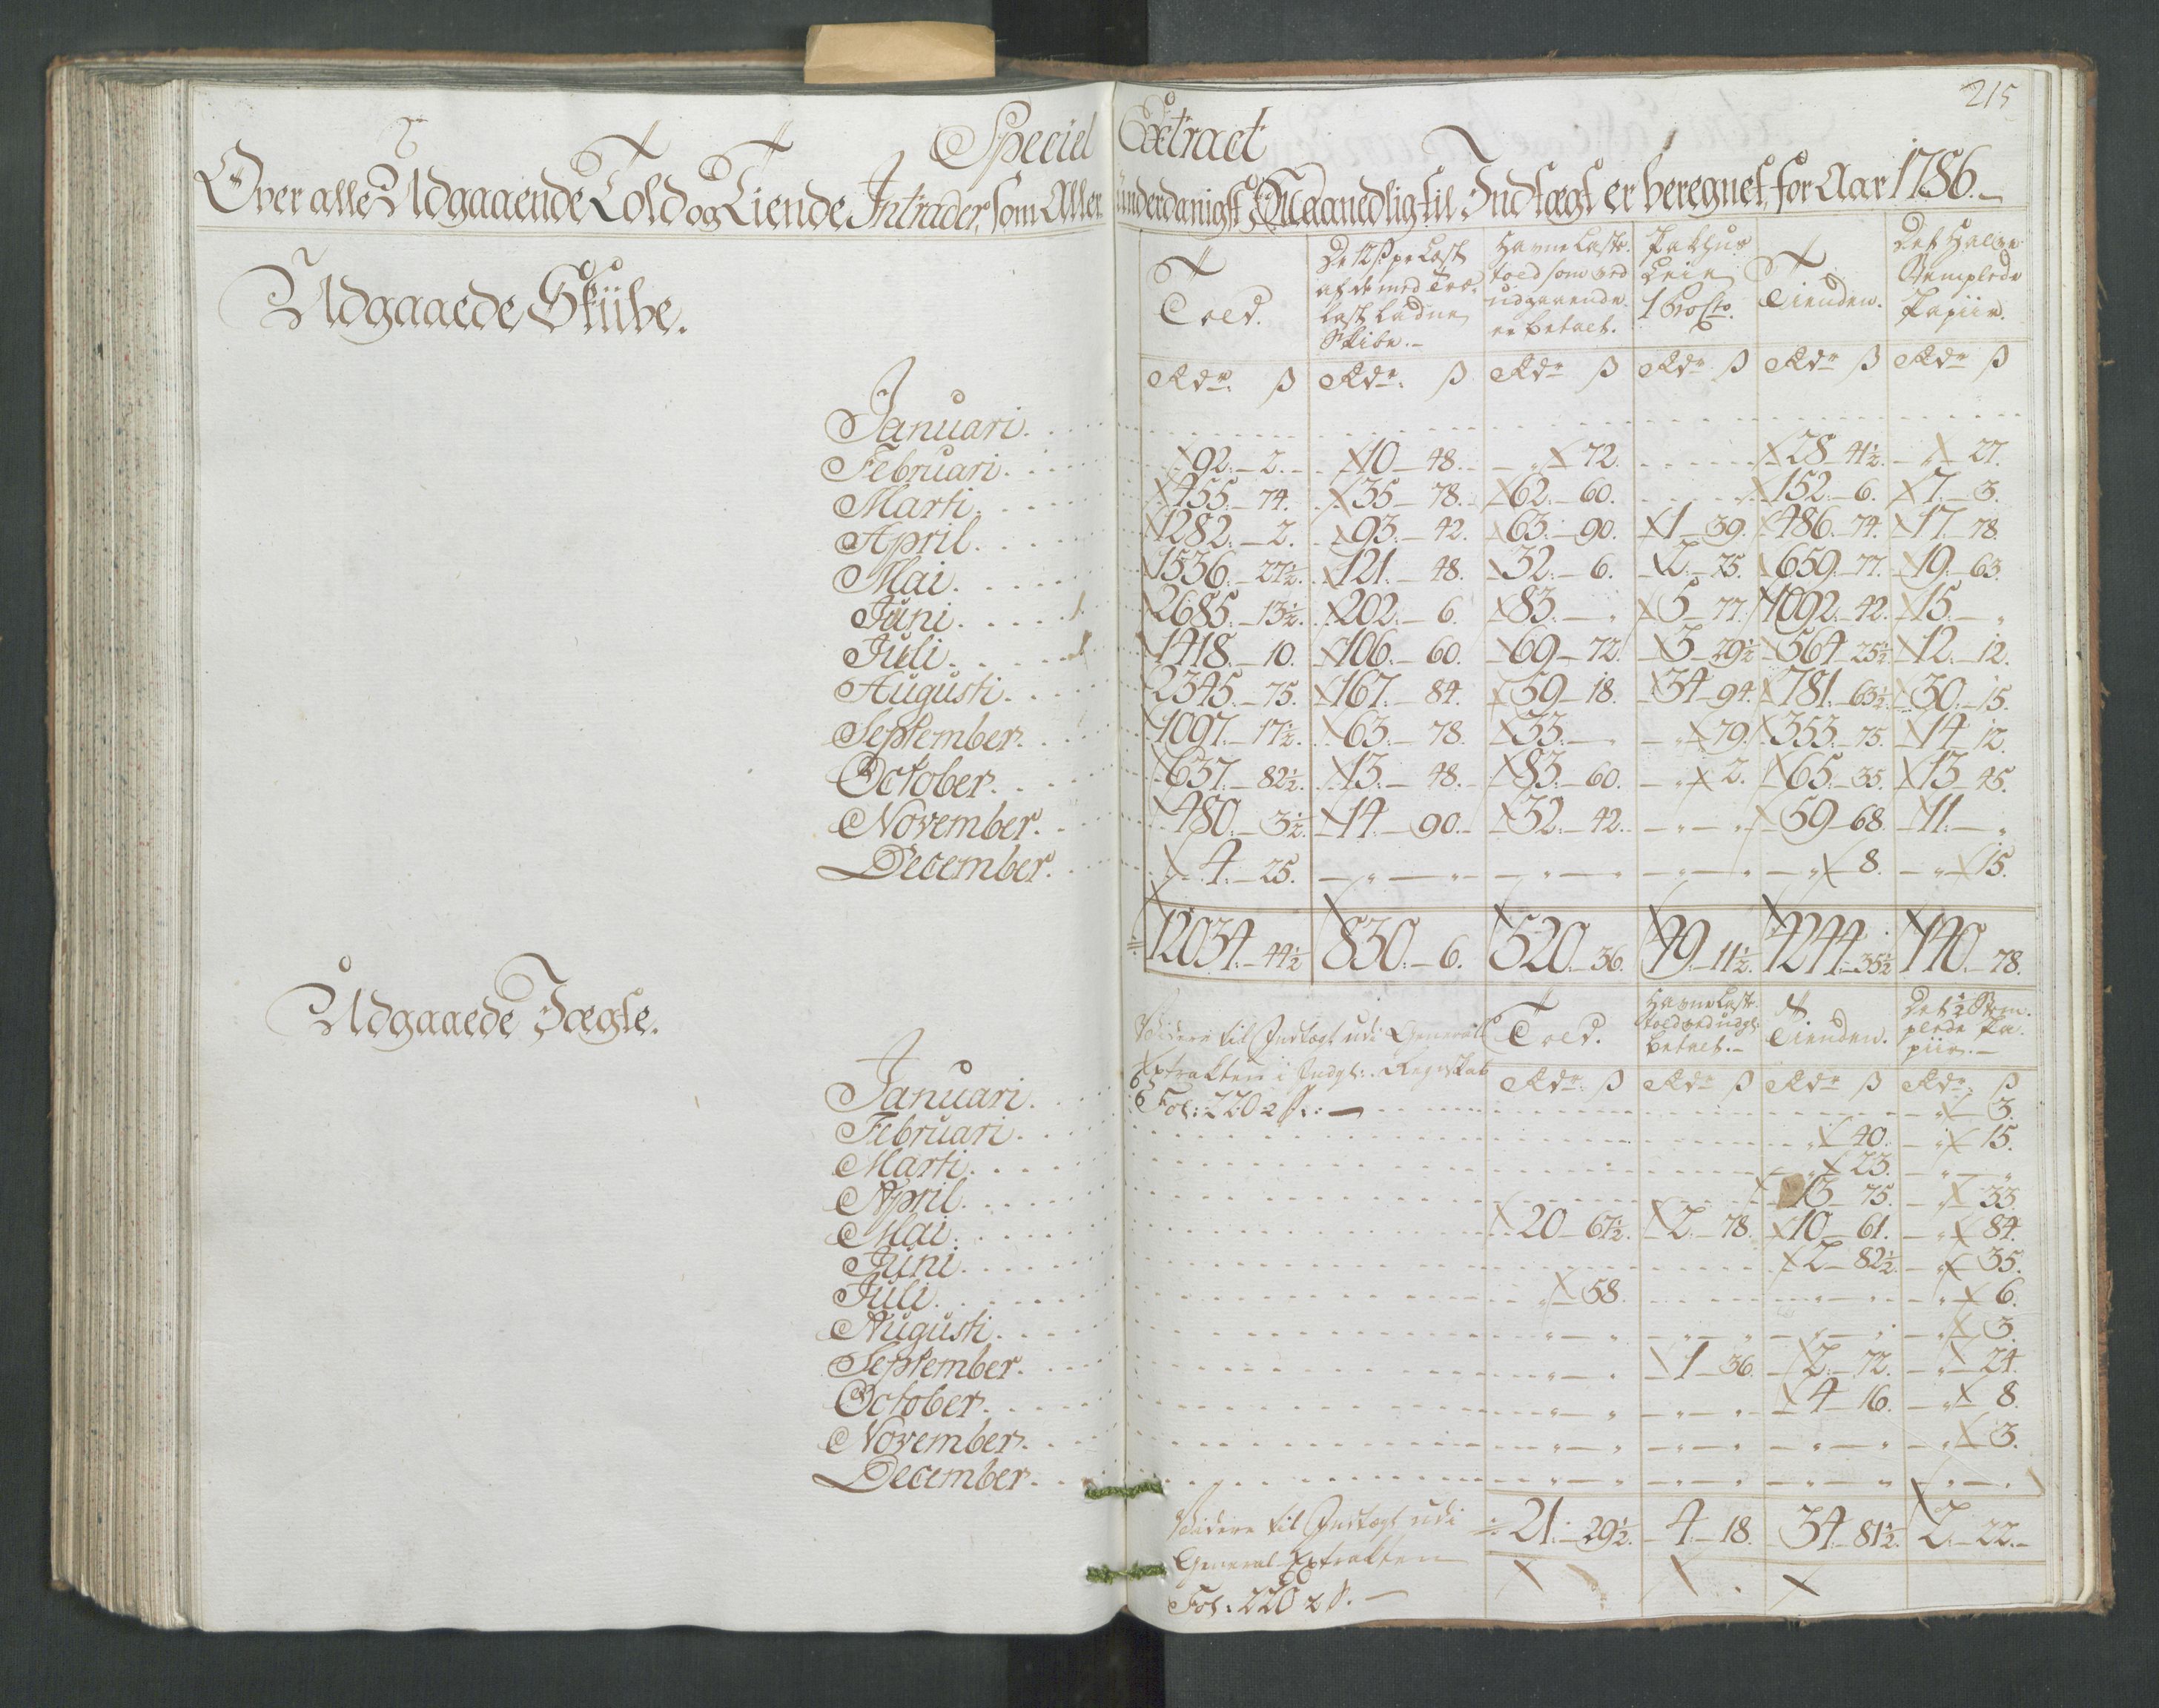 215
Special Extract
Over alle Udgaaende Told og Tiende Intrader, som Allerunderdanigst Maanedlig til Indtægt er beregnet, for Aar 1786.
Udgaaede Skibe.
Told. | De 12 ß pr Last af de med Træ- last ladne Skibe. | Havne Laste- told som ved udgaaende er betalt. | Pakhus Leie 1 Procto. | Tienden. | Det Halve Stemplede Papiir.
Rdr. ß | Rdr. ß | Rdr ß | Rdr ß | Rdr ß | Rdr ß
Januari.
Februari. 92. 2. | 10 48. | „ 72. | | 28 41½. | „ 27.
Marti. 455. 74. | 35 78. | 62. 60. | | 152. 6. | 7. 3.
April. 1282. 2. | 93. 42. | 63. 90. | 1 39. | 486. 74. | 17. 78.
Mai. 1536. 27½. | 121. 48. | 32. 6. | 2. 75. | 659. 77. | 19. 63.
Juni. 2685. 13½. | 202. 6. | 83. „ | 5 77. | 1092. 42. | 15. „
Juli. 1418. 10. | 106. 60. | 69 72. | 3 29½ | 564 25½. | 12. 12.
Augusti. 2345. 75. | 167. 84. | 59 18. | 34 94. | 781. 63½. | 30. 15.
September. 1097. 17½. | 63. 78. | 33. „ | „ 79. | 353. 75. | 14 12.
October. 637. 82½. | 13. 48. | 83. 60. | „ 2. | 65. 35. | 13 45.
November. 480. 3½. | 14. 90. | 32. 42. | „ „ | 59 68. | 11. „
December. 4. 25. | „ „ | „ „ | „ „ | „ 8. | „ 15.
12034. 44½ | 830. 6. | 520. 36. | 49. 11½. | 4244. 35½ | 140. 78.
Udgaaede Jægte.
Videre til Indtægt udi General Extrakten i Indgl: Regnskab Fol: 220 2 S.:
Told. | Havne Laste- told ved udgl: betalt. | Tienden. | Det ½ Stem- plede Pa- piir.
Rdr. ß | Rdr ß | Rdr ß | Rdr. ß
Januari. „ 3.
Februari. „ 40. | „ 15.
Marti. „ 23. | „ „
April. 13 75. | „ 33.
Mai. 20 67½. | 2. 78. | 10 61. | „ 84.
Juni. 2 82½. | „ 35.
Juli. „ 58. | | „ „ | „ 6.
Augusti. „ „ | „ „ | „ „ | „ 3.
September. „ „ | 1 36. | 2. 72. | „ 24.
October. „ „ | „ „ | 4 16. | „ 8.
November. „ „ | „ „ | „ „ | „ 3.
December. „ „ | „ „ | „ „ | „ „
21. 29½. | 4. 18. | 34. 81½. | 2. 22.
Videre til Indtægt udi
General Extrakten
Fol: 220 2 S.